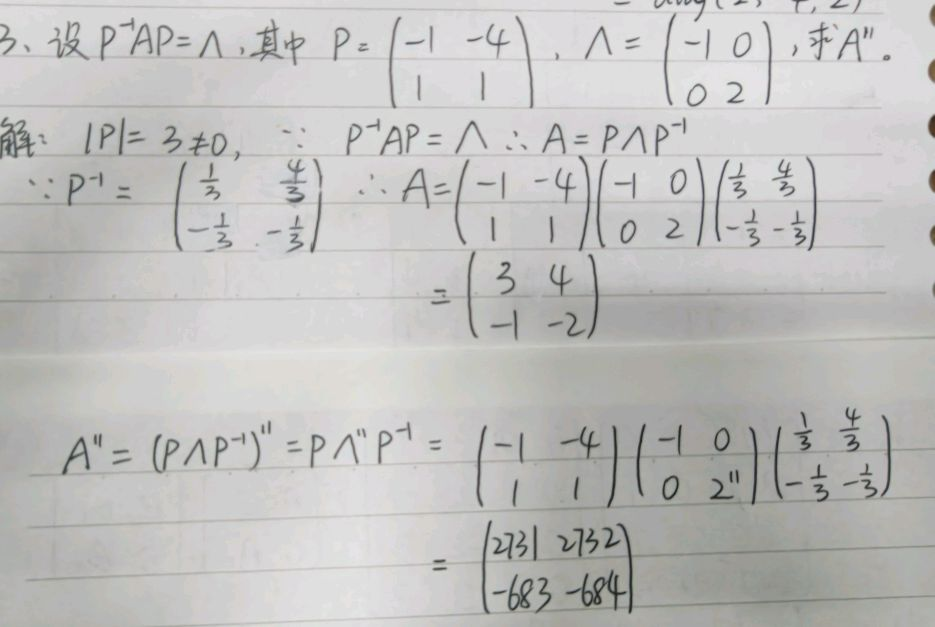 3、设 P⁻¹AP=Λ,其中 P= (-1 -4; 1 1), Λ= (-1 0; 0 2),求A¹¹。
解: |P|= 3≠0, ∵ P⁻¹AP=Λ ∴ A=PΛP⁻¹
∵ P⁻¹= (1/3 4/3; -1/3 -1/3) ∴ A= (-1 -4; 1 1)(-1 0; 0 2)(1/3 4/3; -1/3 -1/3)
= (3 4; -1 -2)
A¹¹=(PΛP⁻¹)¹¹=PΛ¹¹P⁻¹= (-1 -4; 1 1)(-1 0; 0 2¹¹)(1/3 4/3; -1/3 -1/3)
= (2731 2732; -683 -684)